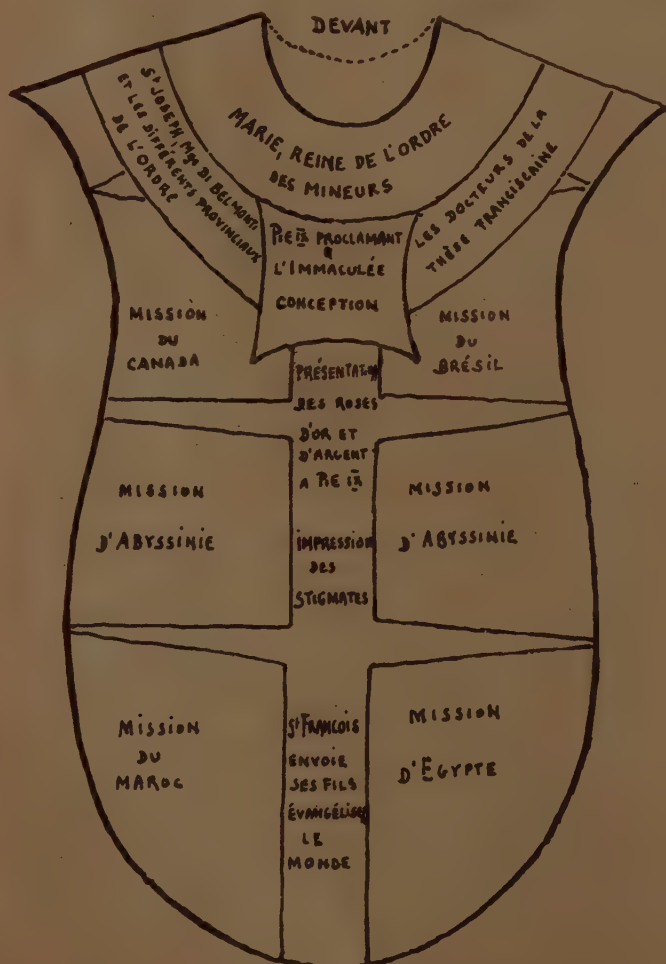 DEVANT
St JOSEPH, Mgr DI BELMONTI
ET LES DIFFÉRENTS PROVINCIAUX
DE L'ORDRE
MARIE, REINE DE L'ORDRE
DES MINEURS
LES DOCTEURS DE LA
THÈSE FRANCISCAINE
PIE IX PROCLAMANT
L'IMMACULÉE
CONCEPTION
MISSION
DU
CANADA
MISSION
DU
BRÉSIL
PRÉSENTATION
DES ROSES
D'OR ET
D'ARGENT
A PIE IX
MISSION
D'ABYSSINIE
MISSION
D'ABYSSINIE
IMPRESSION
DES
STIGMATES
MISSION
DU
MAROC
St FRANÇOIS
ENVOIE
SES FILS
ÉVANGÉLISER
LE
MONDE
MISSION
D'EGYPTE